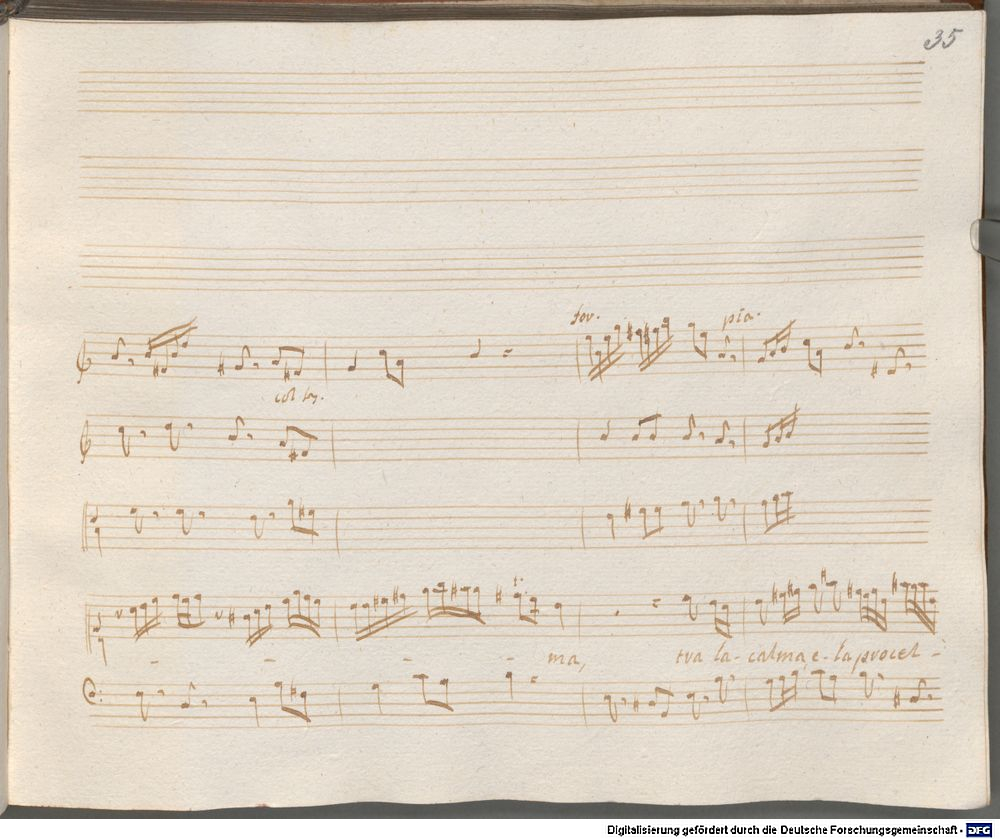 35
for. pia.
col
ma, tra la-calma, e-la procel-
Digitalisierung gefördert durch die Deutsche Forschungsgemeinschaft - DFG